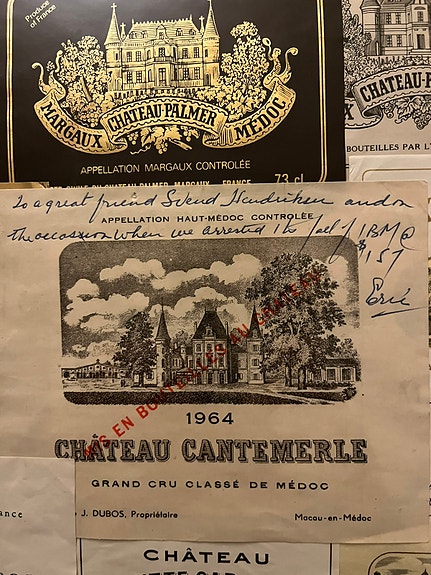 Produce
of France
MARGAUX CHATEAU-PALMER MEDOC
APPELLATION MARGAUX CONTROLÉE
CHATEAU PALMER MARGAUX FRANCE
73 cl
CHATEAU-P
BOUTEILLES PAR L'
To a great friend Svend Hendriksen and on
APPELLATION HAUT-MÉDOC CONTROLÉE
the occasion when we arrested the fall of IBM @
$157
Eric
MIS EN BOUTEILLES AU CHATEAU
1964
CHÂTEAU CANTEMERLE
GRAND CRU CLASSÉ DE MÉDOC
J. DUBOS, Propriétaire
Macau-en-Médoc
ance
CHÂTEAU